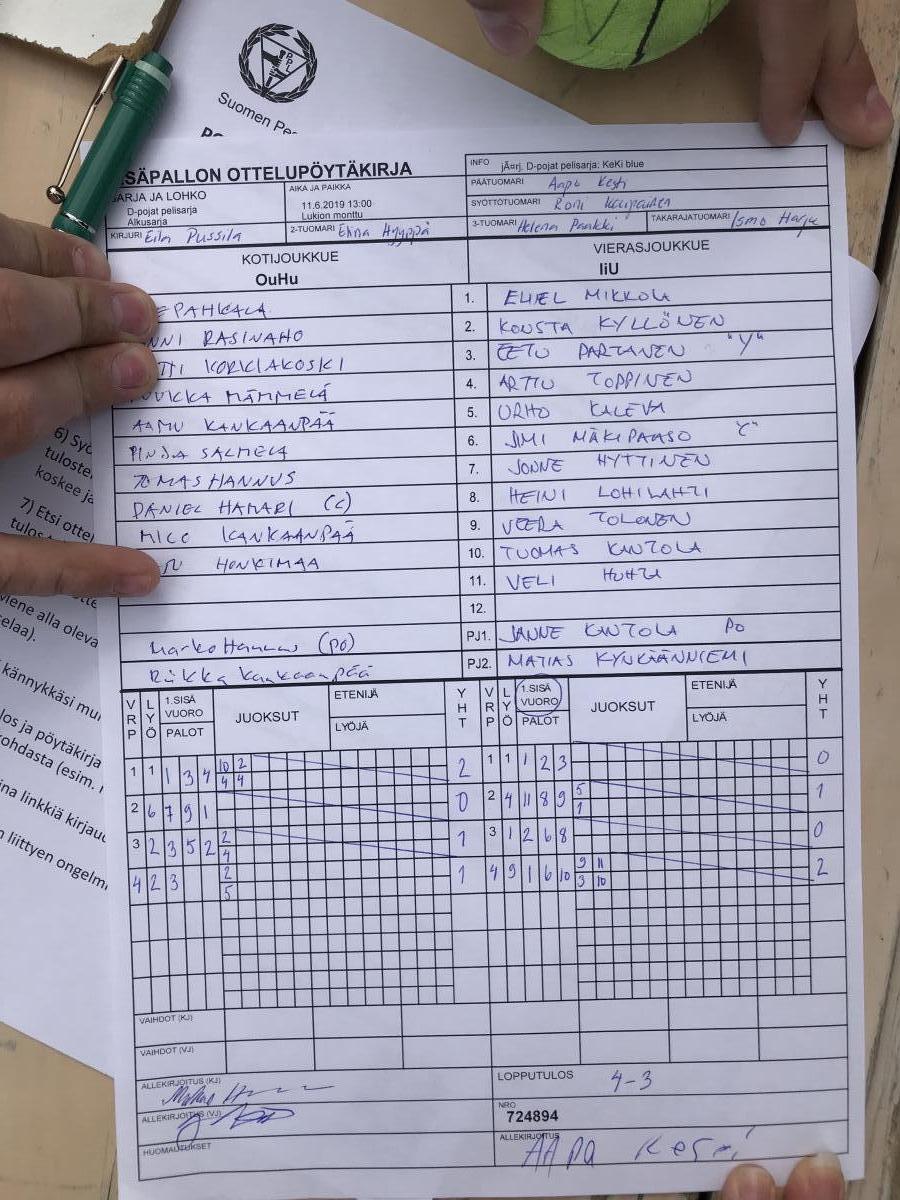 Suomen Pe
SÄPALLON OTTELUPÖYTÄKIRJA
SARJA JA LOHKO
D-pojat pelisarja
Alkusarja
AIKA JA PAIKKA
11.6.2019 13:00
Lukion monttu
INFO jÃ¤rj. D-pojat pelisarja: KeKi blue
PÄÄTUOMARI Aapo Kesti
SYÖTTÖTUOMARI Roni
KIRJURI Eila Pussila
2-TUOMARI Elina Hyyppä
3-TUOMARI Helena Pankki
TAKARAJATUOMARI Ismo Harju
KOTIJOUKKUE
OuHu
VIERASJOUKKUE
IiU
PAHKALA 1. ELIEL MIKKOLA
NNI RASINAHO 2. KONSTA KYLLÖNEN
TTI KORKIAKOSKI 3. EETU PARTANEN "V"
UKKA MÄMMELÄ 4. ARTTU TOPPINEN
AAMU KANKAANPÄÄ 5. URHO KALEVA
PINJA SALMELA 6. JIMI MÄKIPAASO "C"
TOMAS HANNUS 7. JONNE HYTTINEN
DANIEL HAMARI (C) 8. HEINI LOHILAHTI
MICO KANKAANPÄÄ 9. VEERA TOLONEN
HONKIMAA 10. TUOMAS KANTOLA
11. VELI HUHTA
12.
Marko Hannus (PO) PJ1. JANNE KANTOLA PO
Riikka Kankaanpää PJ2. MATIAS KYNKÄÄNNIEMI
VRP LYÖ 1.SISÄ VUORO PALOT JUOKSUT ETENIJÄ LYÖJÄ YHT VRP LYÖ 1.SISÄ VUORO PALOT JUOKSUT ETENIJÄ LYÖJÄ YHT
1 1 1 3 4 10 2 2 1 1 1 2 3 0
4 4
2 6 7 9 1 0 2 4 11 8 9 5 1
1
3 2 3 5 2 2 1 3 1 2 6 8 0
4
4 2 3 2 1 4 9 1 6 10 9 11 2
5 3 10
VAIHDOT (KJ)
VAIHDOT (VJ)
ALLEKIRJOITUS (KJ)
ALLEKIRJOITUS (VJ)
HUOMAUTUKSET
LOPPUTULOS 4-3
NRO
724894
ALLEKIRJOITUS
AAPO Kesti
6) Syö
tulostei
koskee ja
7) Etsi otte
kännykkäsi mui
los ja pöytäkirja
kohdasta (esim.
ina linkkiä kirjaud
n liittyen ongelm